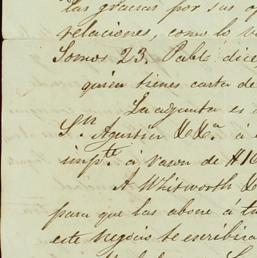 las gracias por sus
relaciones, como lo
Somos 23. Pablo dice
quien tienes carta de
La adjunta es
Sn. Agustin &.&a. á
impte. á Vacon de #16
A Whitworth &
para que las abone á tu
este negocio te escribira